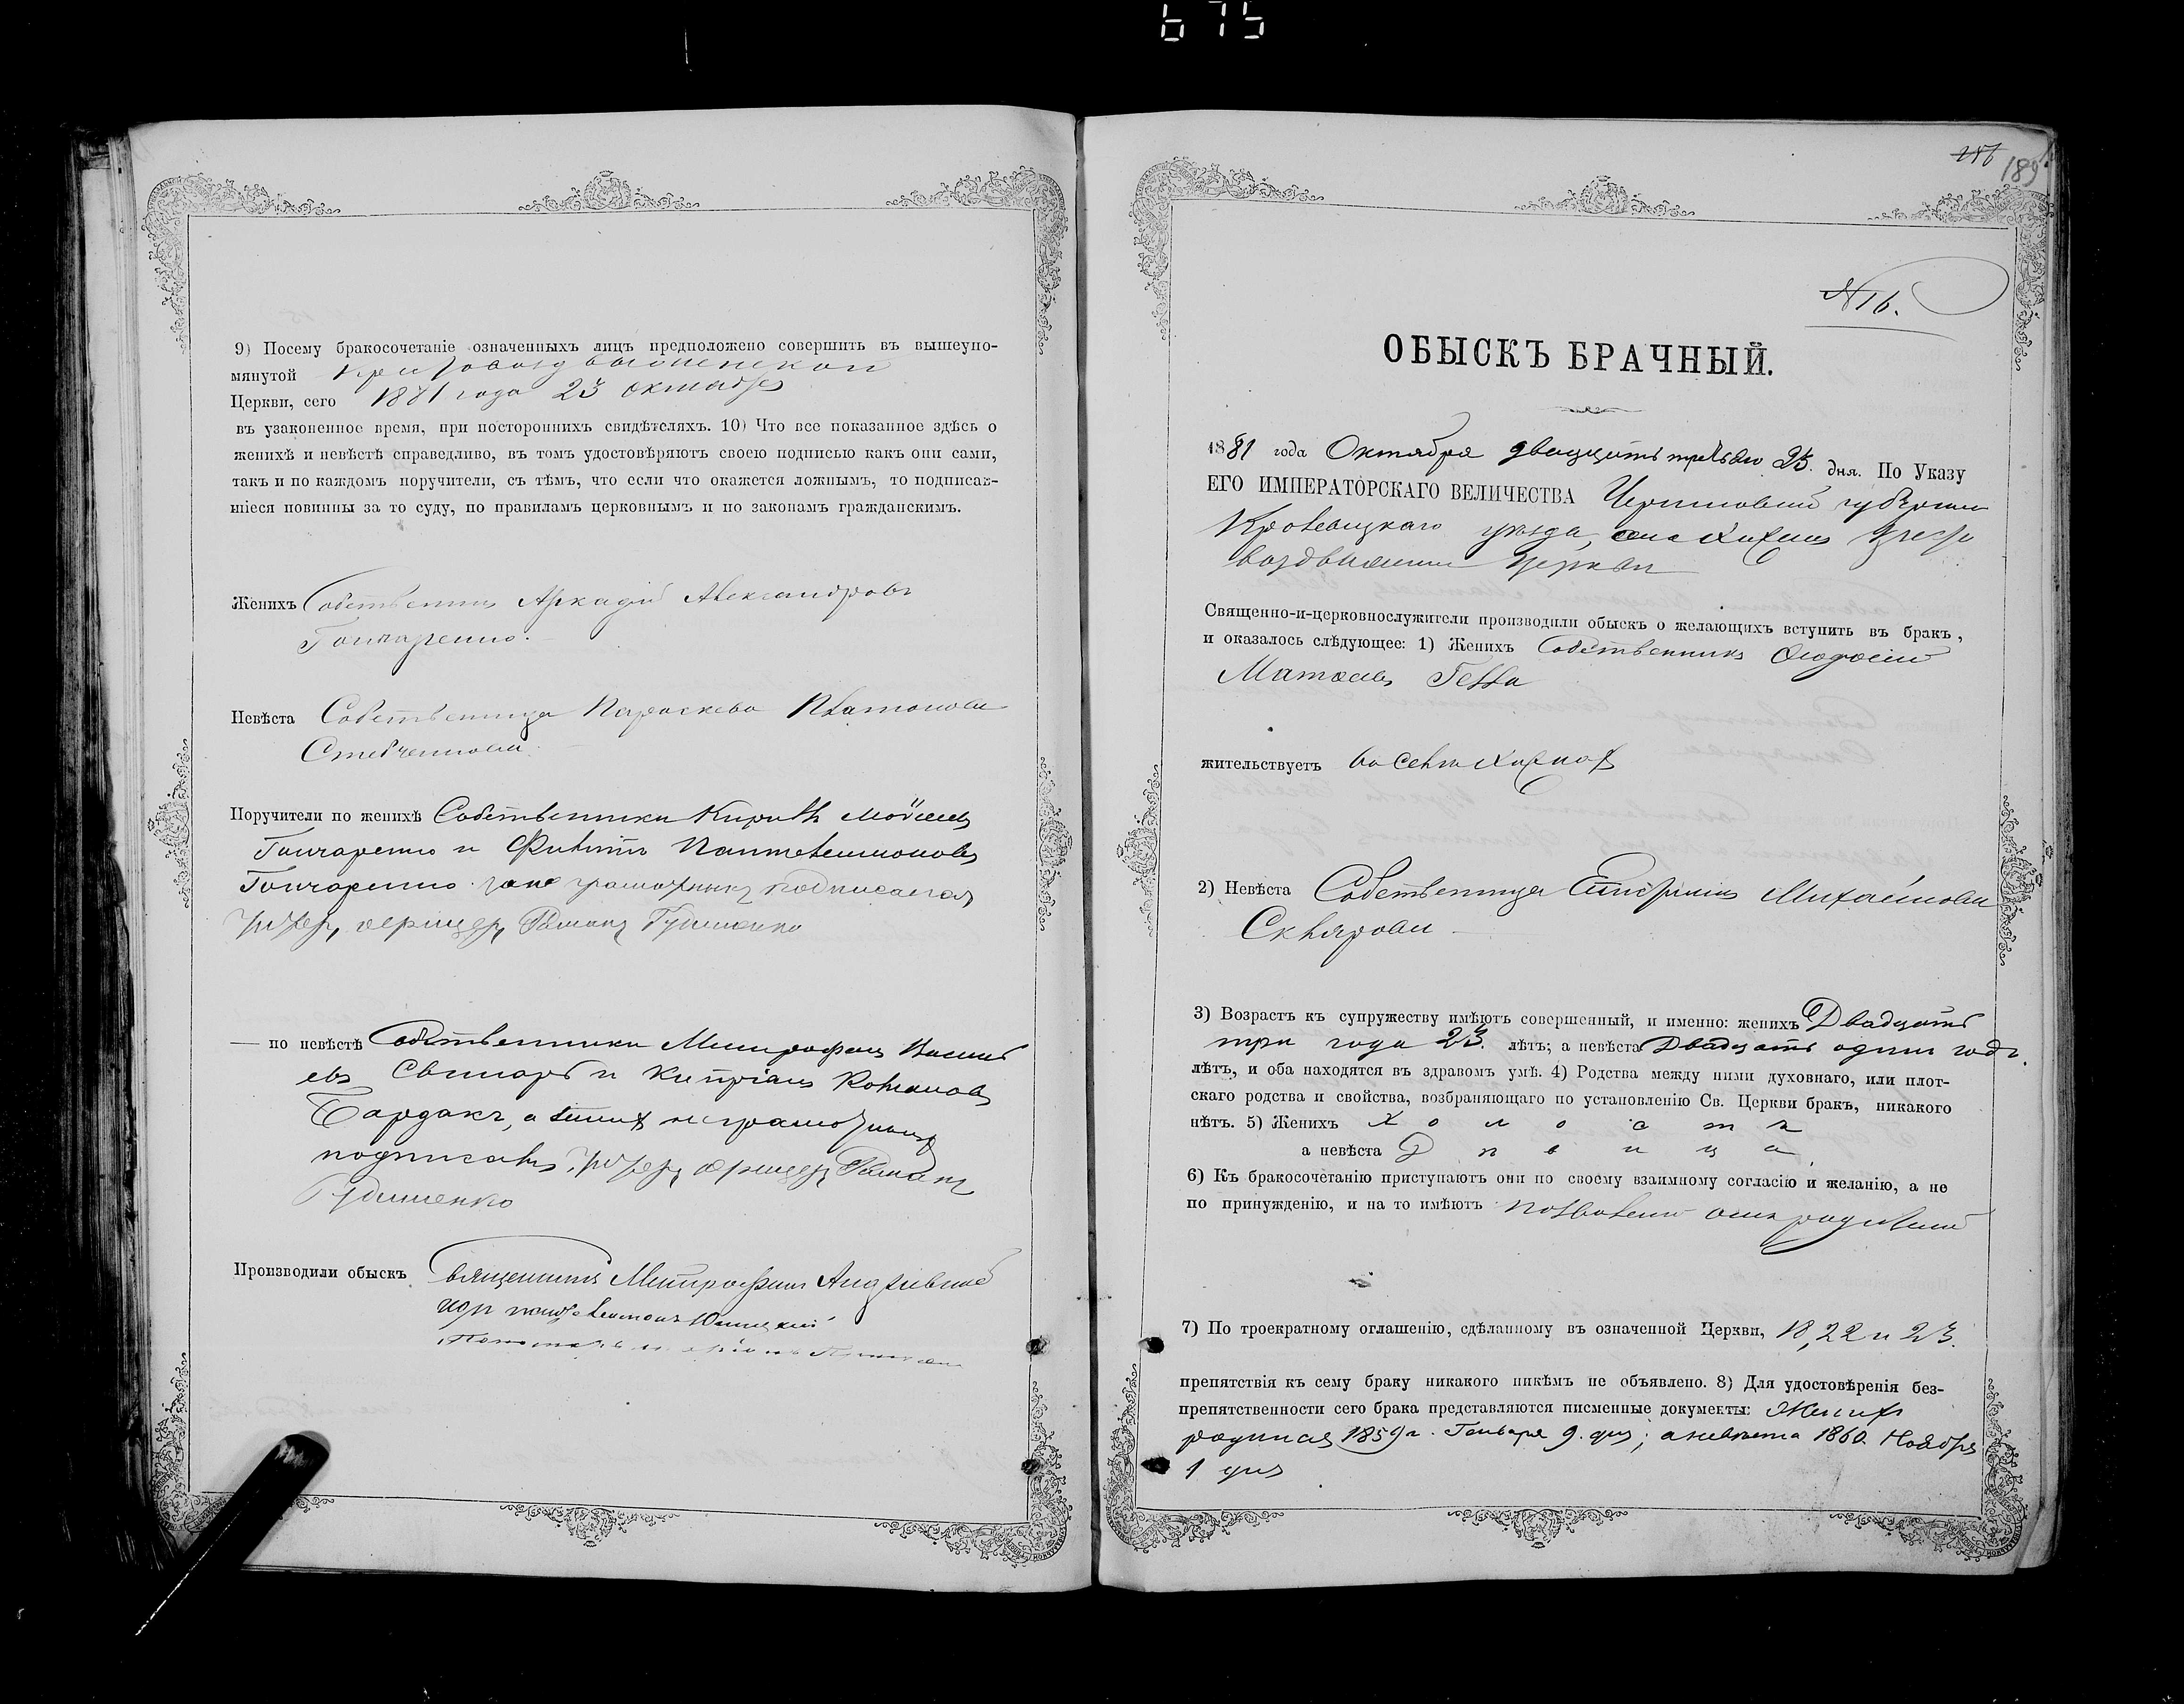 675
9) Посему бракосочетаніе означенныхъ лицъ предположено совершить въ вышеупо-
мянутой Крестовоздвиженской
Церкви, сего 1881 года 23 октября
въ узаконенное время, при постороннихъ свидѣтеляхъ. 10) Что все показанное здѣсь о
женихѣ и невѣстѣ справедливо, въ томъ удостовѣряютъ своею подписью какъ они сами,
такъ и по каждомъ поручители, съ тѣмъ, что если что окажется ложнымъ, то подписав-
шіеся повинны за то суду, по правиламъ церковнымъ и по законамъ гражданскимъ.
Женихъ Собственникъ Аркадій Александровъ
Гончаренко.
Невѣста Собственница Параскева Платонова
Поручители по женихѣ Собственники Кириллъ Моѵсеевъ
Гончаренко и Филиппъ Пантелеимоновъ
Гончаренко подписался
Романъ
— по невѣстѣ Собственники Митрофанъ Васильевъ
и Кипріанъ Романовъ
Бардакъ, а
подписалъ Романъ
Производили обыскъ Священникъ Митрофанъ Андріевскій
256
189
№ 16.
ОБЫСКЪ БРАЧНЫЙ.
1881 года Октября двадцать третьяго 23. дня. По Указу
ЕГО ИМПЕРАТОРСКАГО ВЕЛИЧЕСТВА Черниговской губерніи
Кролевецкаго уѣзда, села
воздвиженской церкви
Священно-и-церковнослужители производили обыскъ о желающихъ вступить въ бракъ,
и оказалось слѣдующее: 1) Женихъ Собственникъ Ѳеодосій
Матѳеевъ Гелла
жительствуетъ въ селѣ
2) Невѣста Собственница Михайлова
Склярова
3) Возрастъ къ супружеству имѣютъ совершенный, и именно: женихъ Двадцать
три года 23. лѣтъ; а невѣста Двадцать одинъ годъ.
лѣтъ, и оба находятся въ здравомъ умѣ. 4) Родства между ними духовнаго, или плот-
скаго родства и свойства, возбраняющаго по установленію Св. Церкви бракъ, никакого
нѣтъ. 5) Женихъ Холостъ
а невѣста Дѣвица.
6) Къ бракосочетанію приступаютъ они по своему взаимному согласію и желанію, а не
по принужденію, и на то имѣютъ позволеніе отъ родителей
7) По троекратному оглашенію, сдѣланному въ означенной Церкви, 18, 22 и 23.
препятствія къ сему браку никакого никѣмъ не объявлено. 8) Для удостовѣренія без-
препятственности сего брака представляются писменные документы: Женихъ
родился 1859 г. Генваря 9. дня; а невѣста 1860. Ноября
1 дня